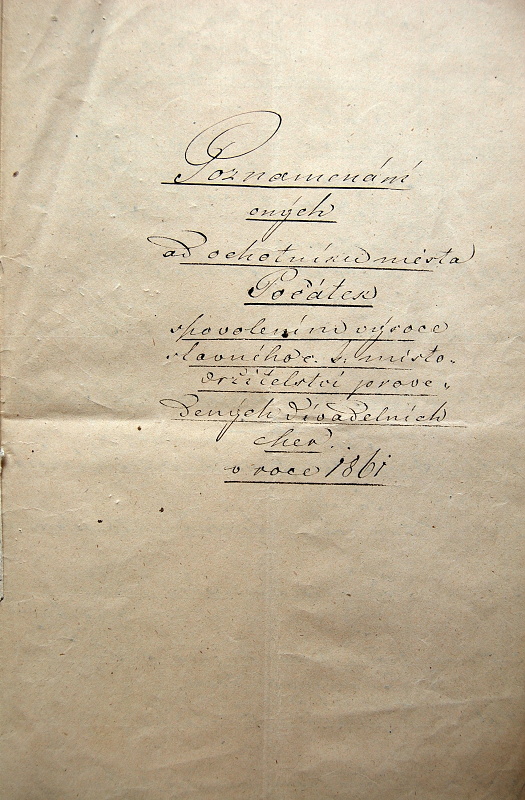 Poznamenání
oných
od ochotníků města
Počátek
spovolením výroce
slavného c. k. místo-
držitelství prove-
dených divadelních
her
v roce 1861